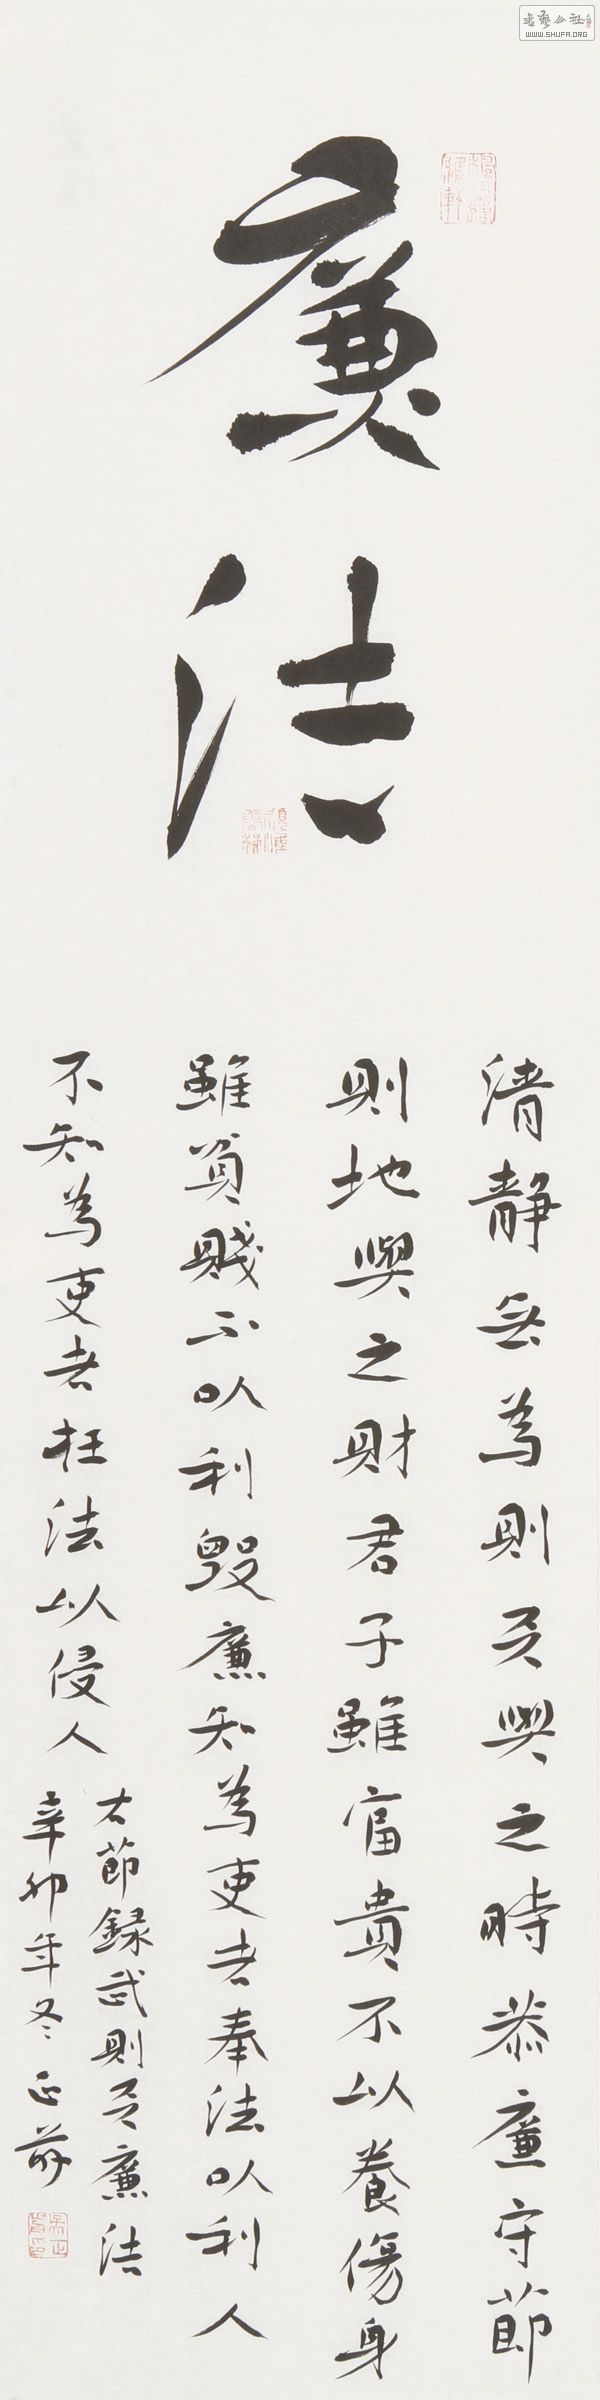 廉法
清静無為則天與之時恭廉守節
則地與之財君子雖富貴不以養傷身
雖貧賤不以利毁廉知為吏者奉法以利人
不知為吏者枉法以侵人
右節録武則天廉法
辛卯年冬
WWW.SHUFA.ORG